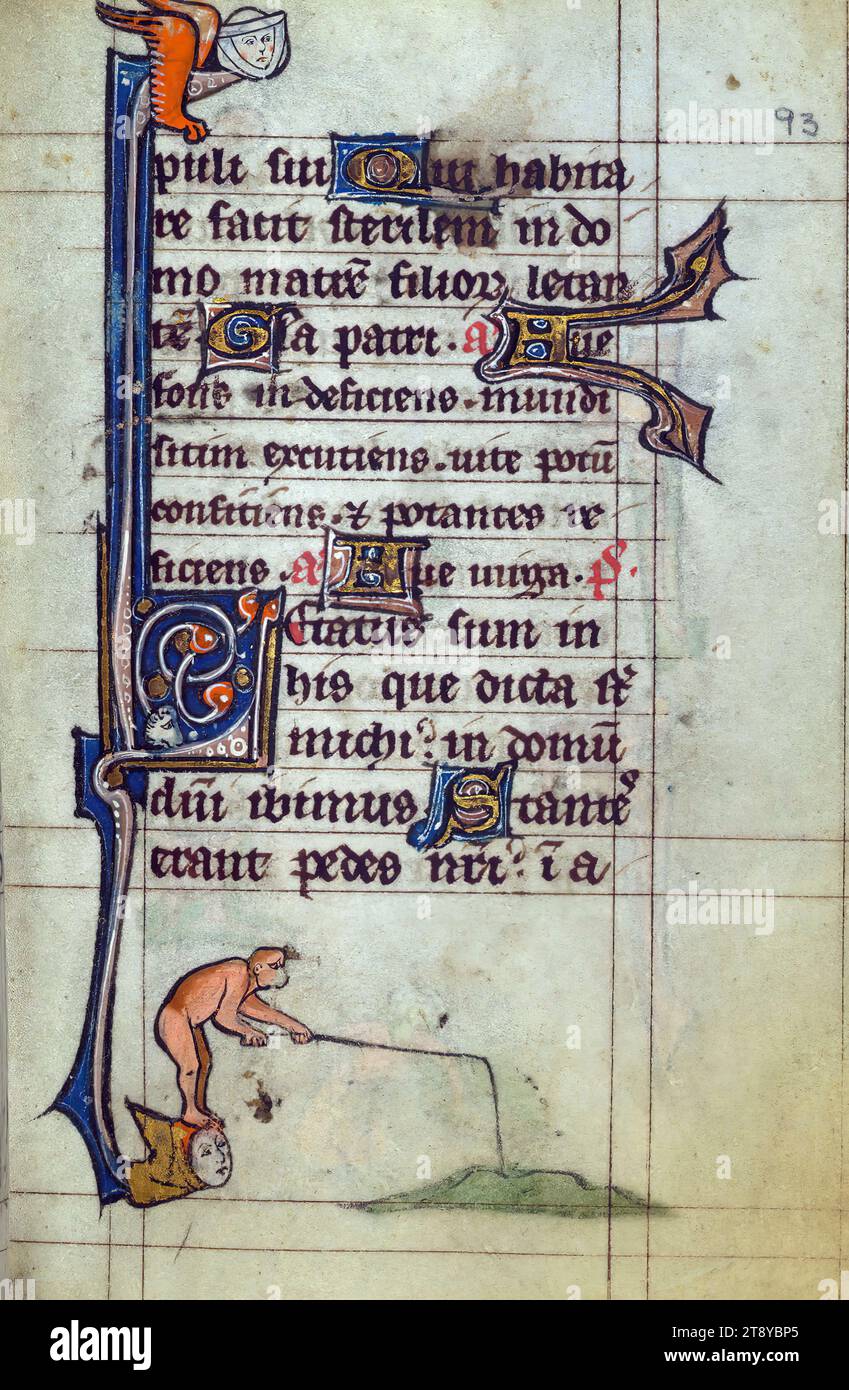 93
puli sui Qui habita
re facit sterilem in do
mo matrē filiorꝝ letan
tē. Gl̃a patri. añ Aue
fons in deficiens. mundi
sitim excutiens. uite potū
conficiens. ⁊ potantes re
ficiens. añ Aue uirga. p̃s.
Letatus sum in
his que dicta sūt
michi ? in domū
dñi ibimus Stantes
erant pedes nr̃i ? ī a
alamy
Image ID: 2T8YBP5
www.alamy.com